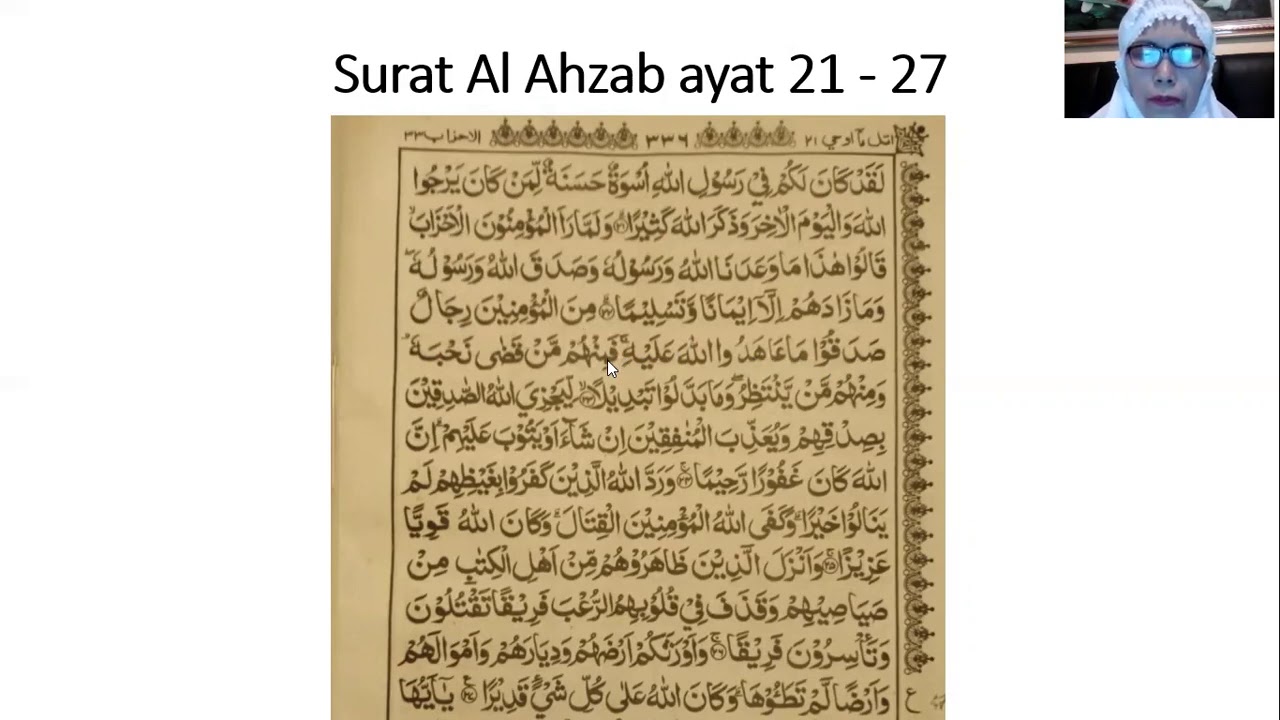 Surat Al Ahzab ayat 21 - 27
اتل مآ اوحي ٢١ ٣٣٦ الاحزاب ٣٣
لَقَدْ كَانَ لَكُمْ فِيْ رَسُوْلِ اللّٰهِ اُسْوَةٌ حَسَنَةٌ لِّمَنْ كَانَ يَرْجُوا
اللّٰهَ وَالْيَوْمَ الْاٰخِرَ وَذَكَرَ اللّٰهَ كَثِيْرًا ۝٢١ وَلَمَّا رَاَ الْمُؤْمِنُوْنَ الْاَحْزَابَ ۙ
قَالُوْا هٰذَا مَا وَعَدَنَا اللّٰهُ وَرَسُوْلُهٗ وَصَدَقَ اللّٰهُ وَرَسُوْلُهٗ ۖ
وَمَا زَادَهُمْ اِلَّآ اِيْمَانًا وَّتَسْلِيْمًا ۝٢٢ مِنَ الْمُؤْمِنِيْنَ رِجَالٌ
صَدَقُوْا مَا عَاهَدُوا اللّٰهَ عَلَيْهِ ۚ فَمِنْهُمْ مَّنْ قَضٰى نَحْبَهٗ
وَمِنْهُمْ مَّنْ يَّنْتَظِرُ ۖ وَمَا بَدَّلُوْا تَبْدِيْلًا ۝٢٣ لِّيَجْزِيَ اللّٰهُ الصّٰدِقِيْنَ
بِصِدْقِهِمْ وَيُعَذِّبَ الْمُنٰفِقِيْنَ اِنْ شَآءَ اَوْ يَتُوْبَ عَلَيْهِمْ ۗ اِنَّ
اللّٰهَ كَانَ غَفُوْرًا رَّحِيْمًا ۝٢٤ وَرَدَّ اللّٰهُ الَّذِيْنَ كَفَرُوْا بِغَيْظِهِمْ لَمْ
يَنَالُوْا خَيْرًا ۗ وَكَفَى اللّٰهُ الْمُؤْمِنِيْنَ الْقِتَالَ ۗ وَكَانَ اللّٰهُ قَوِيًّا
عَزِيْزًا ۝٢٥ وَاَنْزَلَ الَّذِيْنَ ظَاهَرُوْهُمْ مِّنْ اَهْلِ الْكِتٰبِ مِنْ
صَيَاصِيْهِمْ وَقَذَفَ فِيْ قُلُوْبِهِمُ الرُّعْبَ فَرِيْقًا تَقْتُلُوْنَ
وَتَأْسِرُوْنَ فَرِيْقًا ۝٢٦ وَاَوْرَثَكُمْ اَرْضَهُمْ وَدِيَارَهُمْ وَاَمْوَالَهُمْ
وَاَرْضًا لَّمْ تَطَـُٔوْهَا ۗ وَكَانَ اللّٰهُ عَلٰى كُلِّ شَيْءٍ قَدِيْرًا ۝٢٧ يٰٓاَيُّهَا
ع